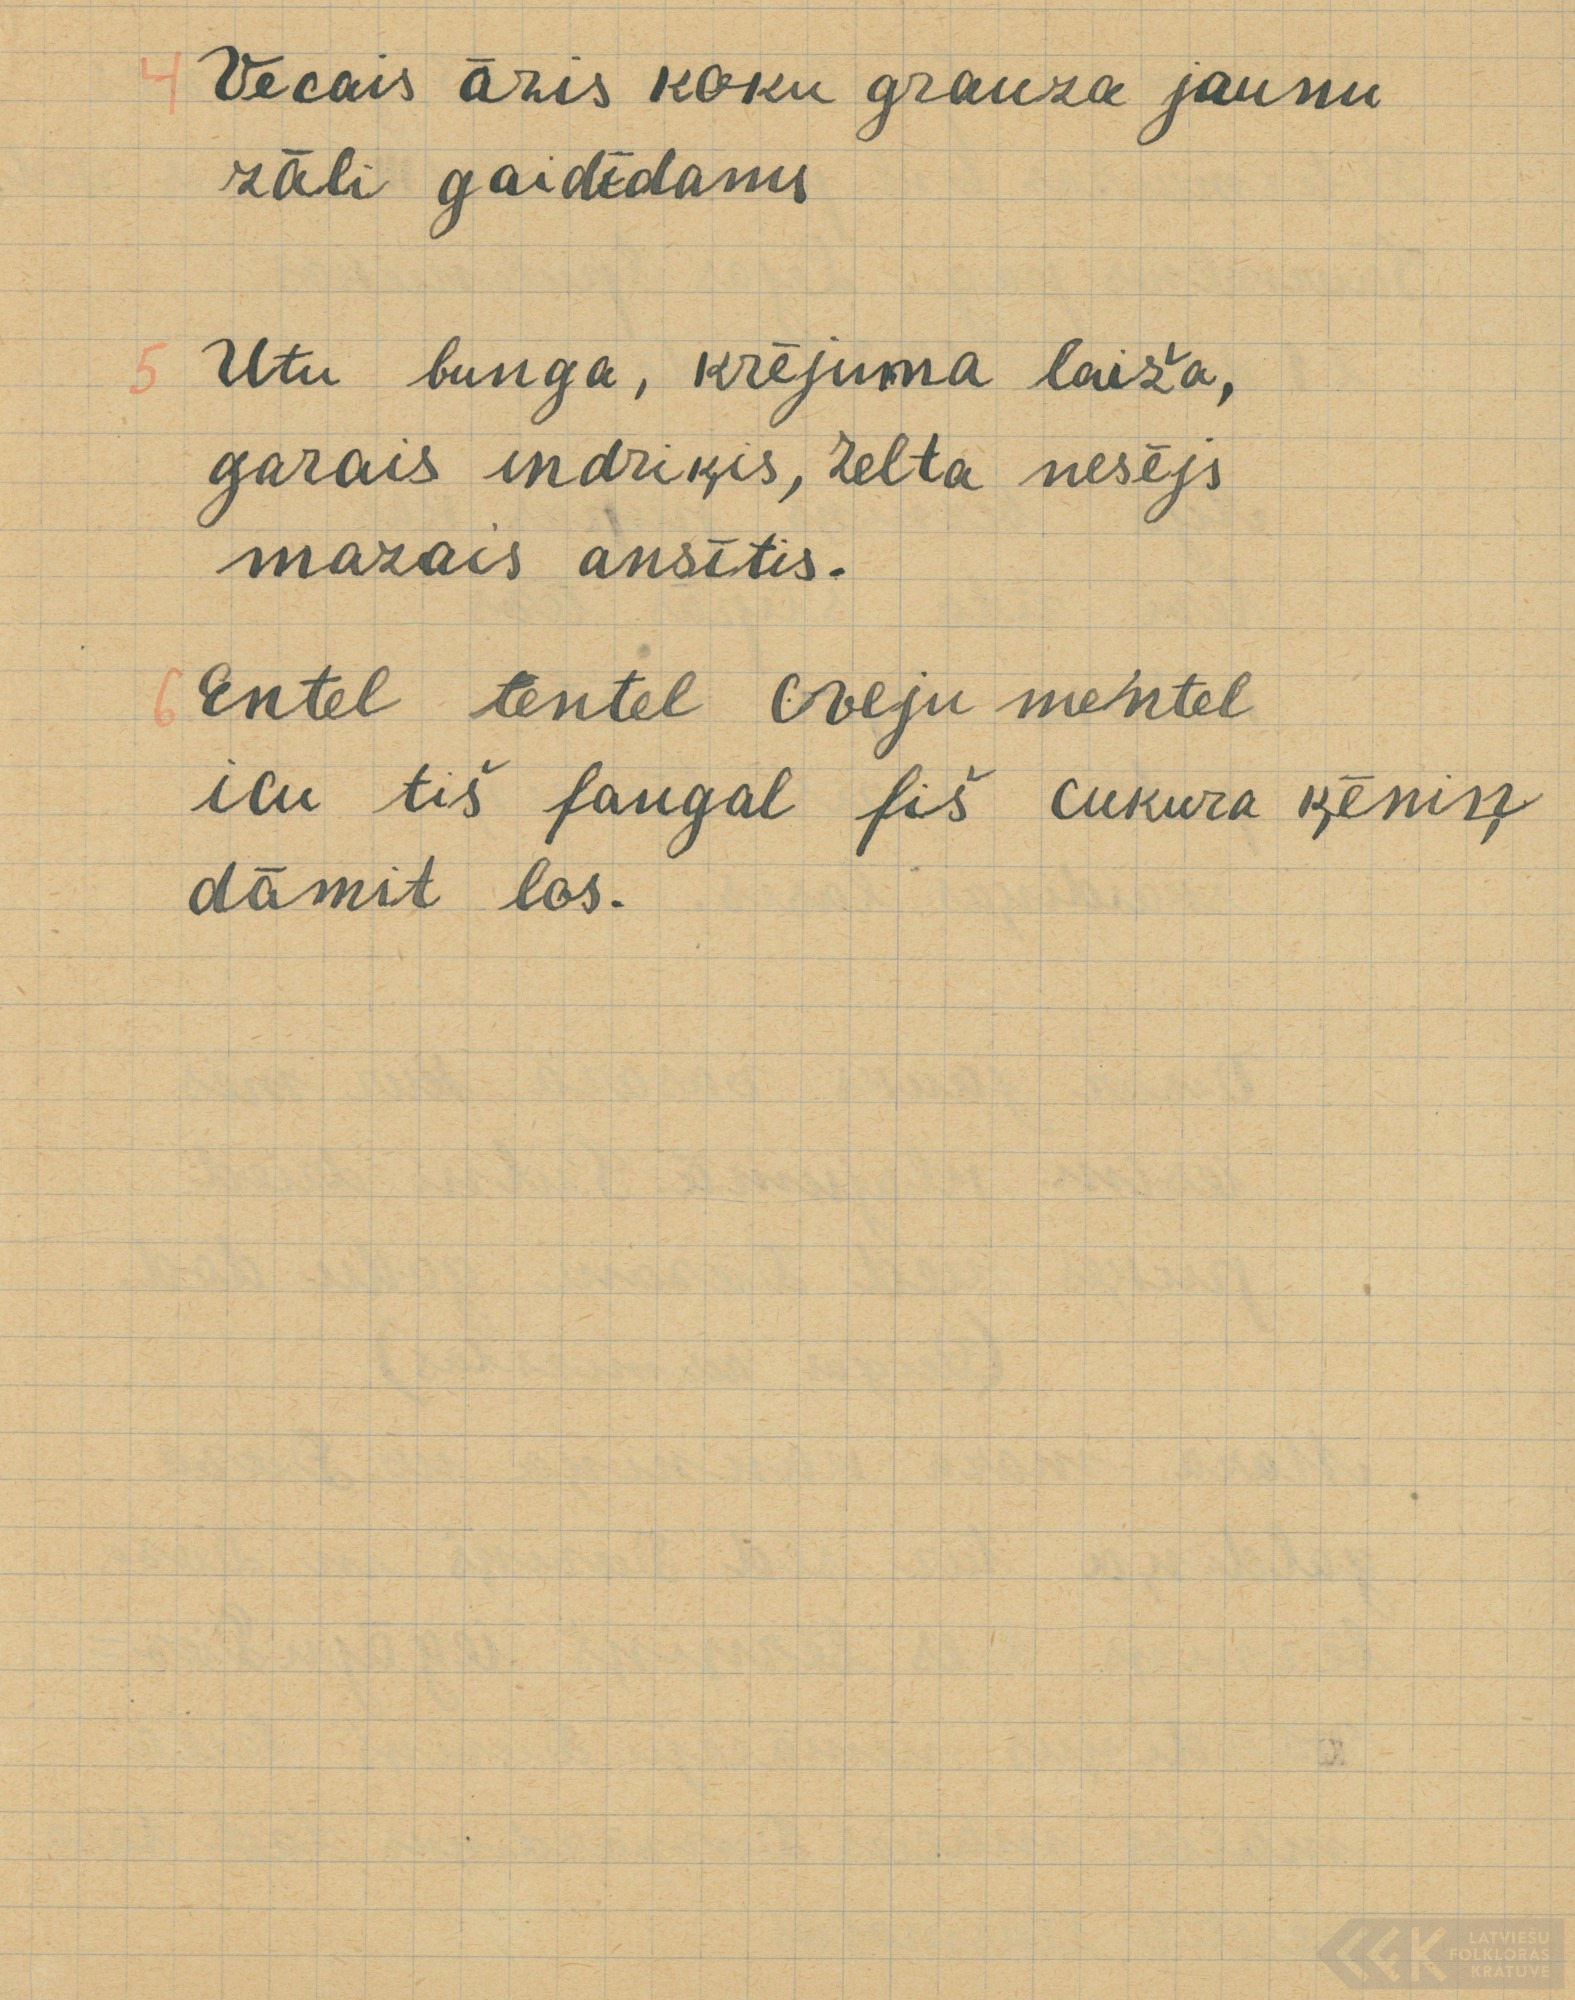 4 Vecais āzis koku grauza jaunu
zāli gaidīdams
5 Utu bunga, krējuma laiža,
garais indriķis, zelta nesējs
mazais ansītis.
6 Entel tentel cveju mentel
icu tiš faugal fiš cukura ķēniņ
dāmit los.
LATVIEŠU
FOLKLORAS
KRĀTUVE